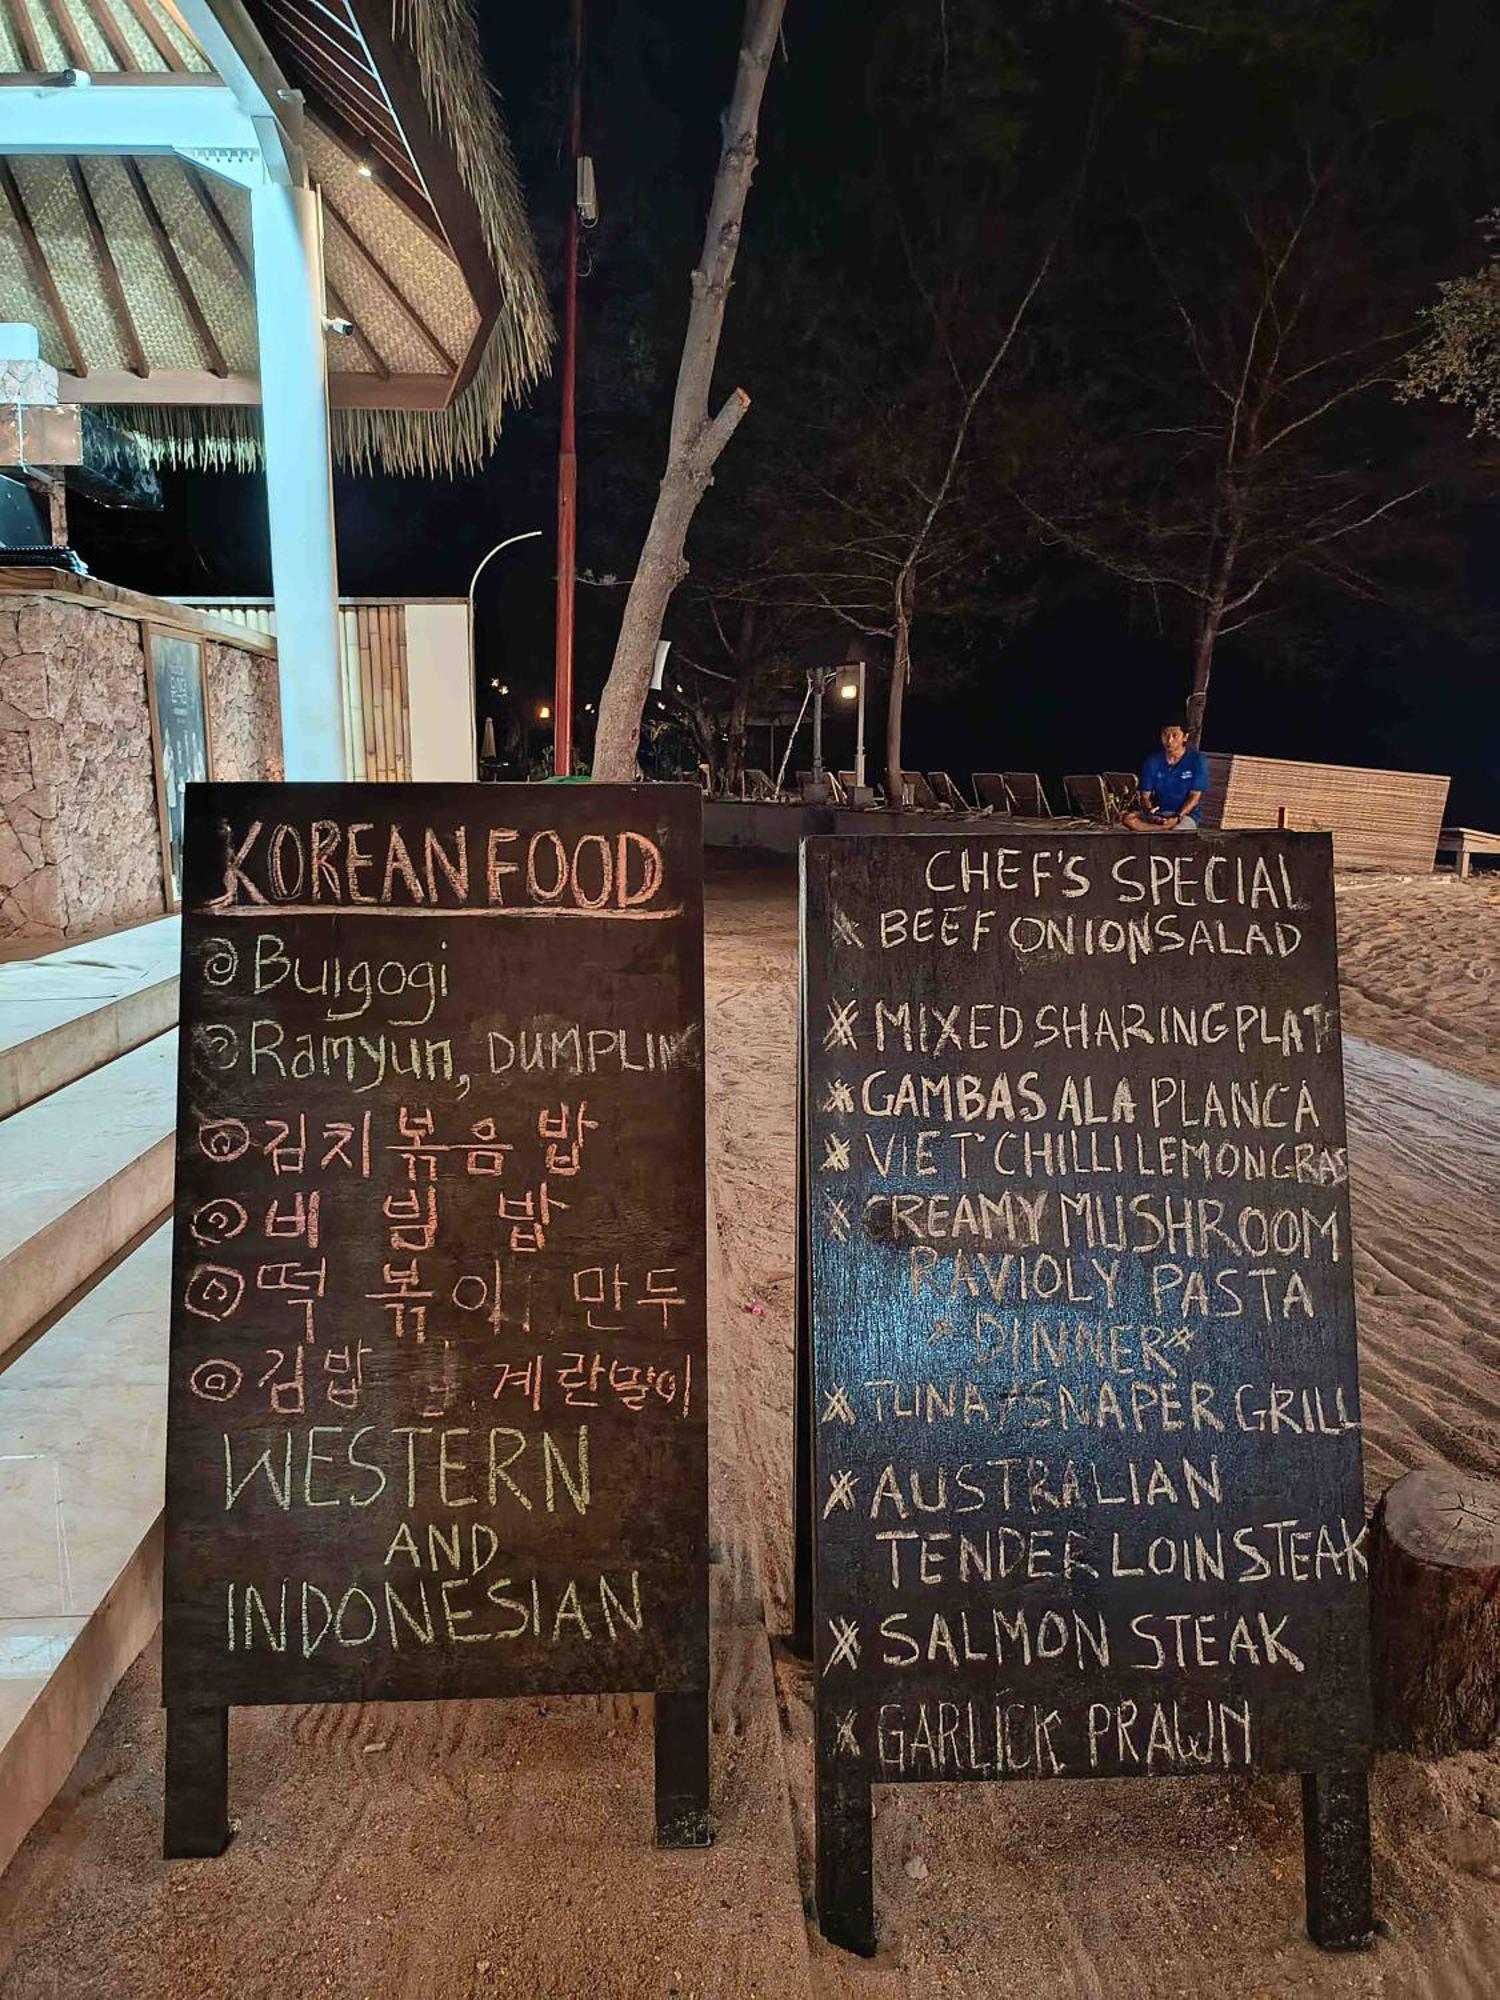 KOREAN FOOD
Bulgogi
Ramyun, DUMPLIN
김치볶음밥
비빔밥
떡볶이 만두
김밥 계란말이
WESTERN
AND
INDONESIAN
CHEF'S SPECIAL
BEEF ONION SALAD
MIXED SHARING PLAT
GAMBAS ALA PLANCA
VIET CHILLI LEMONGRAS
CREAMY MUSHROOM
RAVIOLY PASTA
*DINNER*
TUNA/SNAPER GRILL
AUSTRALIAN
TENDER LOIN STEAK
SALMON STEAK
GARLICK PRAWN